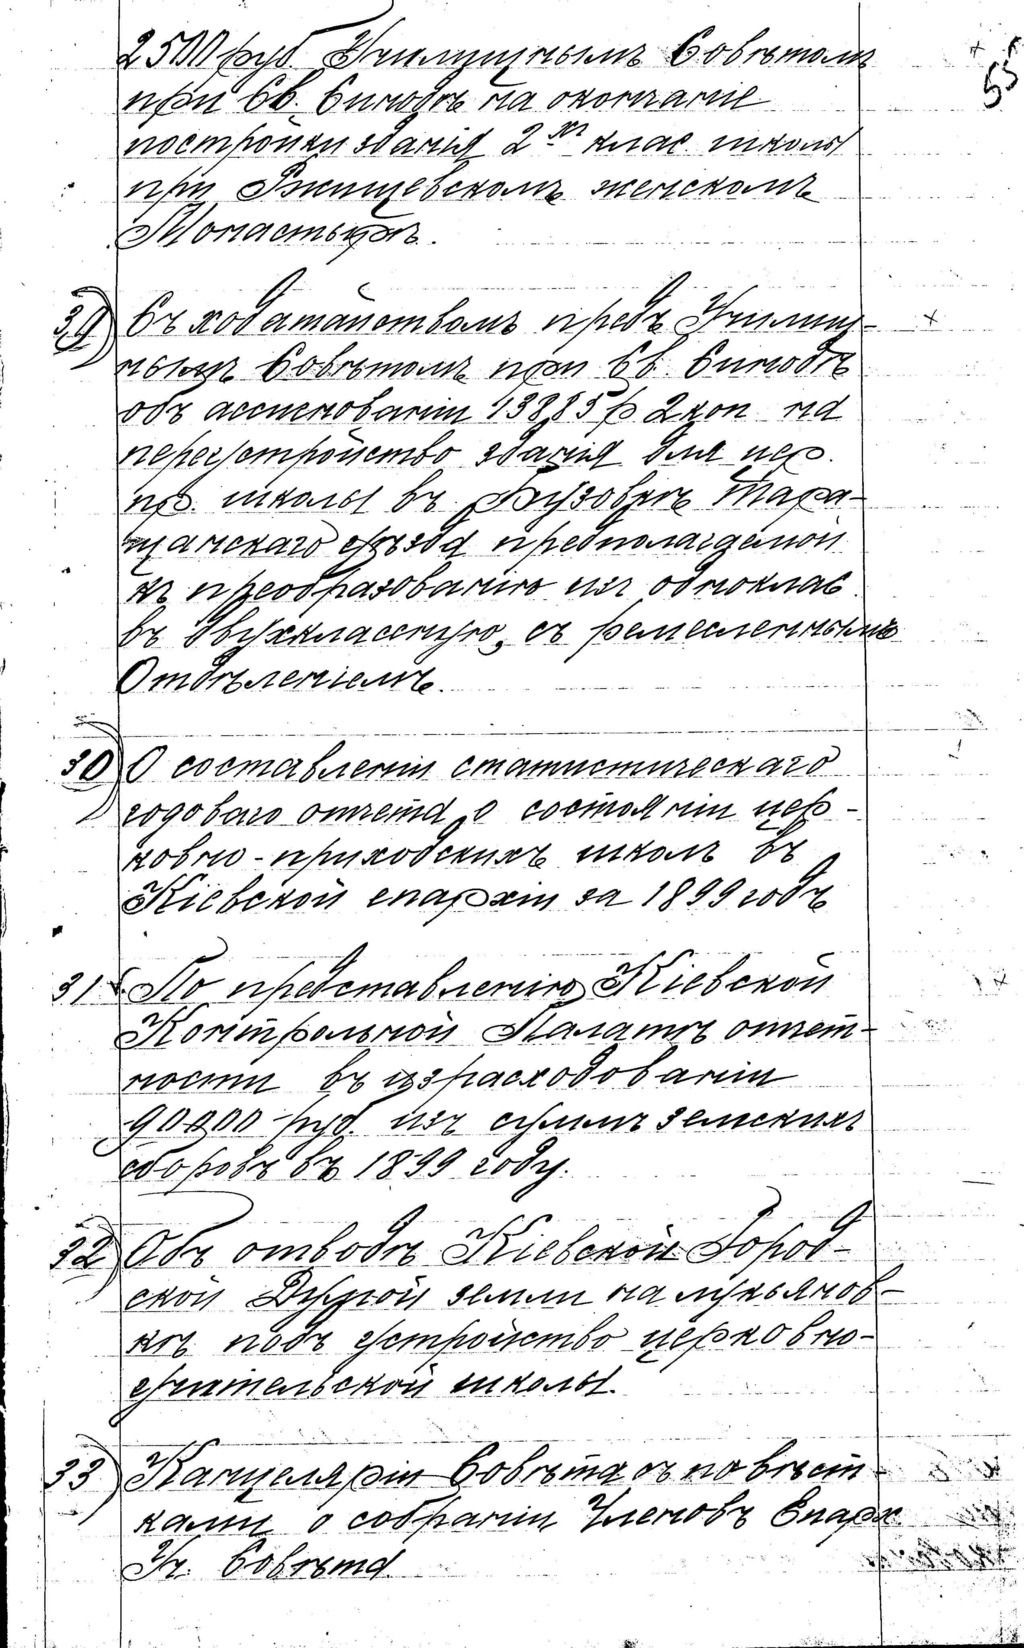 55
2500 руб. Училищнымъ Совѣтомъ
при Св. Синодѣ на окончаніе
постройки зданія 2хъ клас. школы
при Ржищевскомъ женскомъ
Монастырѣ.
29) Съ ходатайствомъ предъ Училищ-
нымъ Совѣтомъ при Св. Синодѣ
объ ассигнованіи 13885 р 2 коп на
переустройство зданія для цер.
пр. школы въ Бузовкѣ Тара-
щанскаго уѣзда предполагаемой
къ преобразованію изъ одноклас.
въ двухклассную, съ ремесленнымъ
Отдѣленіемъ.
30) О составленіи статистическаго
годоваго отчета о состояніи цер-
ковно-приходскихъ школъ въ
Кіевской епархіи за 1899 годъ
31 По представленію Кіевской
Контрольной Палатѣ отчет-
ности въ израсходованіи
90000 руб. изъ суммъ земскихъ
сборовъ въ 1899 году.
32) Объ отводѣ Кіевской Город-
ской Думой земли на Лукьянов-
кѣ подъ устройство церковно-
учительской школы.
33) Канцеляріи Совѣта съ повѣст-
ками о собраніи Членовъ Епарх
Уч. Совѣта